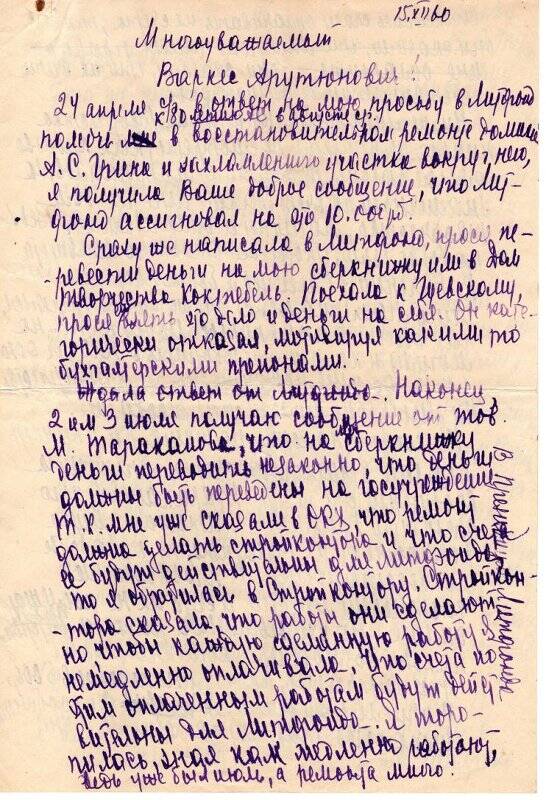 15.XII 60
Многоуважаемый
Варкес Арутюнович!
24 апреля с/г в ответ на мою просьбу в Литфонд
к (80 летию АС в августе с.г.)
помочь мне в восстановительном ремонте домика
А.С. Грина и захламленного участка вокруг него,
я получила Ваше доброе сообщение, что Лит-
фонд ассигновал на это 10.000 рб.
Сразу же написала в Литфонд, прося пе-
-ревести деньги на мою сберкнижку или в Дом
творчества Коктебель. Поехала к
прося взять это дело и деньги на себя. Он кате-
горически отказал, мотивируя какими то
бухгалтерскими препонами.
Ждала ответ от Литфонда. Наконец,
2 или 3 июля получаю сообщение от тов.
М. Тараканова, что на мою сберкнижку
деньги переводить незаконно, что деньги
должны быть переведены на госучреждение
Т.к. мне уже сказали в что ремонт
должна делать стройконтора и что счета
ее будут действительны для Литфонда,
то я обратилась в Стройконтору. Стройкон-
-тора сказала, что работы они сделают
но чтобы каждую сделанную работу я
немедленно оплачивала. Что счета по
этим оплаченным работам будут дейст
вительны для Литфонда. Я торо-
пилась, зная как медленно работают,
ведь уже был июль, а ремонта много.
В Литфонде